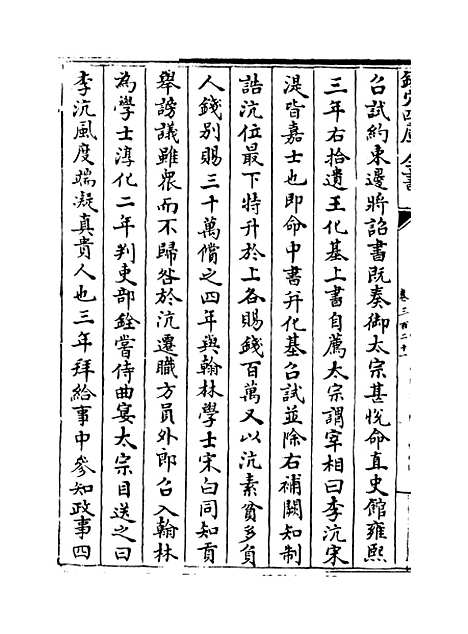 欽定四庫全書
卷三百二十
召試約束邊將詔書既奏御太宗甚悅命直史館雍熙
三年右拾遺王化基上書自薦太宗謂宰相曰李沆宋
湜皆嘉士也即命中書并化基召試並除右補闕知制
誥沆位最下特升於上各賜錢百萬又以沆素貧多負
人錢別賜三十萬償之四年與翰林學士宋白同知貢
舉謗議雖衆而不歸咎於沆遷職方員外郎召入翰林
為學士淳化二年判吏部銓嘗侍曲宴太宗目送之曰
李沆風度端凝真貴人也三年拜給事中參知政事四